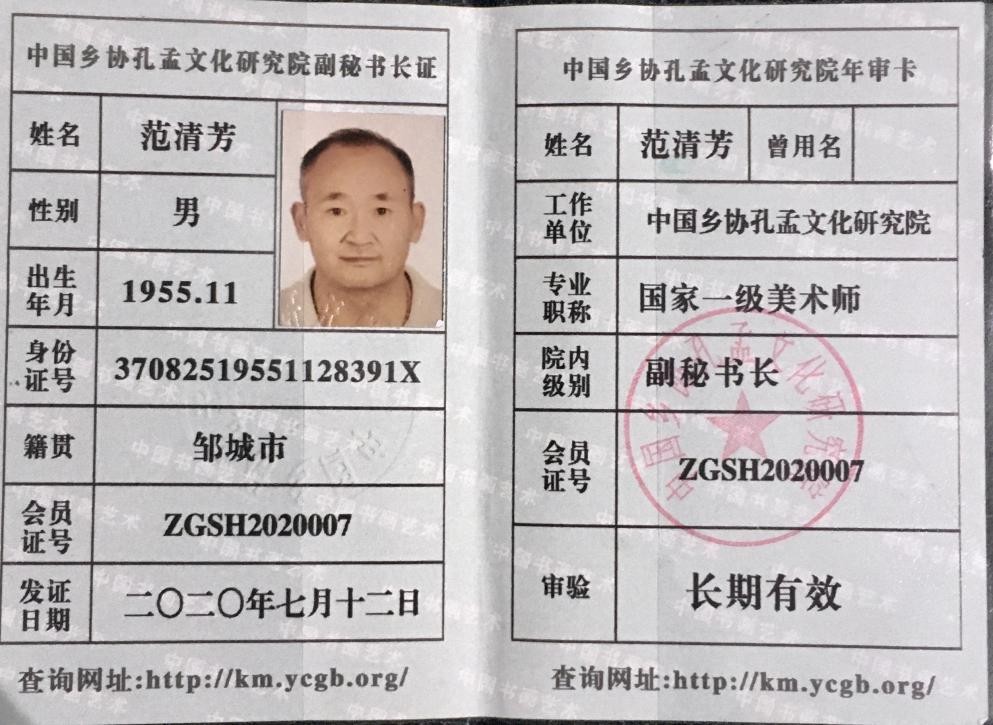 中国乡协孔孟文化研究院副秘书长证
姓名 范清芳
性别 男
出生年月 1955.11
身份证号 37082519551128391X
籍贯 邹城市
会员证号 ZGSH2020007
发证日期 二〇二〇年七月十二日
查询网址:http://km.ycgb.org/
中国乡协孔孟文化研究院年审卡
姓名 范清芳 曾用名
工作单位 中国乡协孔孟文化研究院
专业职称 国家一级美术师
院内级别 副秘书长
会员证号 ZGSH2020007
中国乡协孔孟文化研究院
审验 长期有效
查询网址:http://km.ycgb.org/